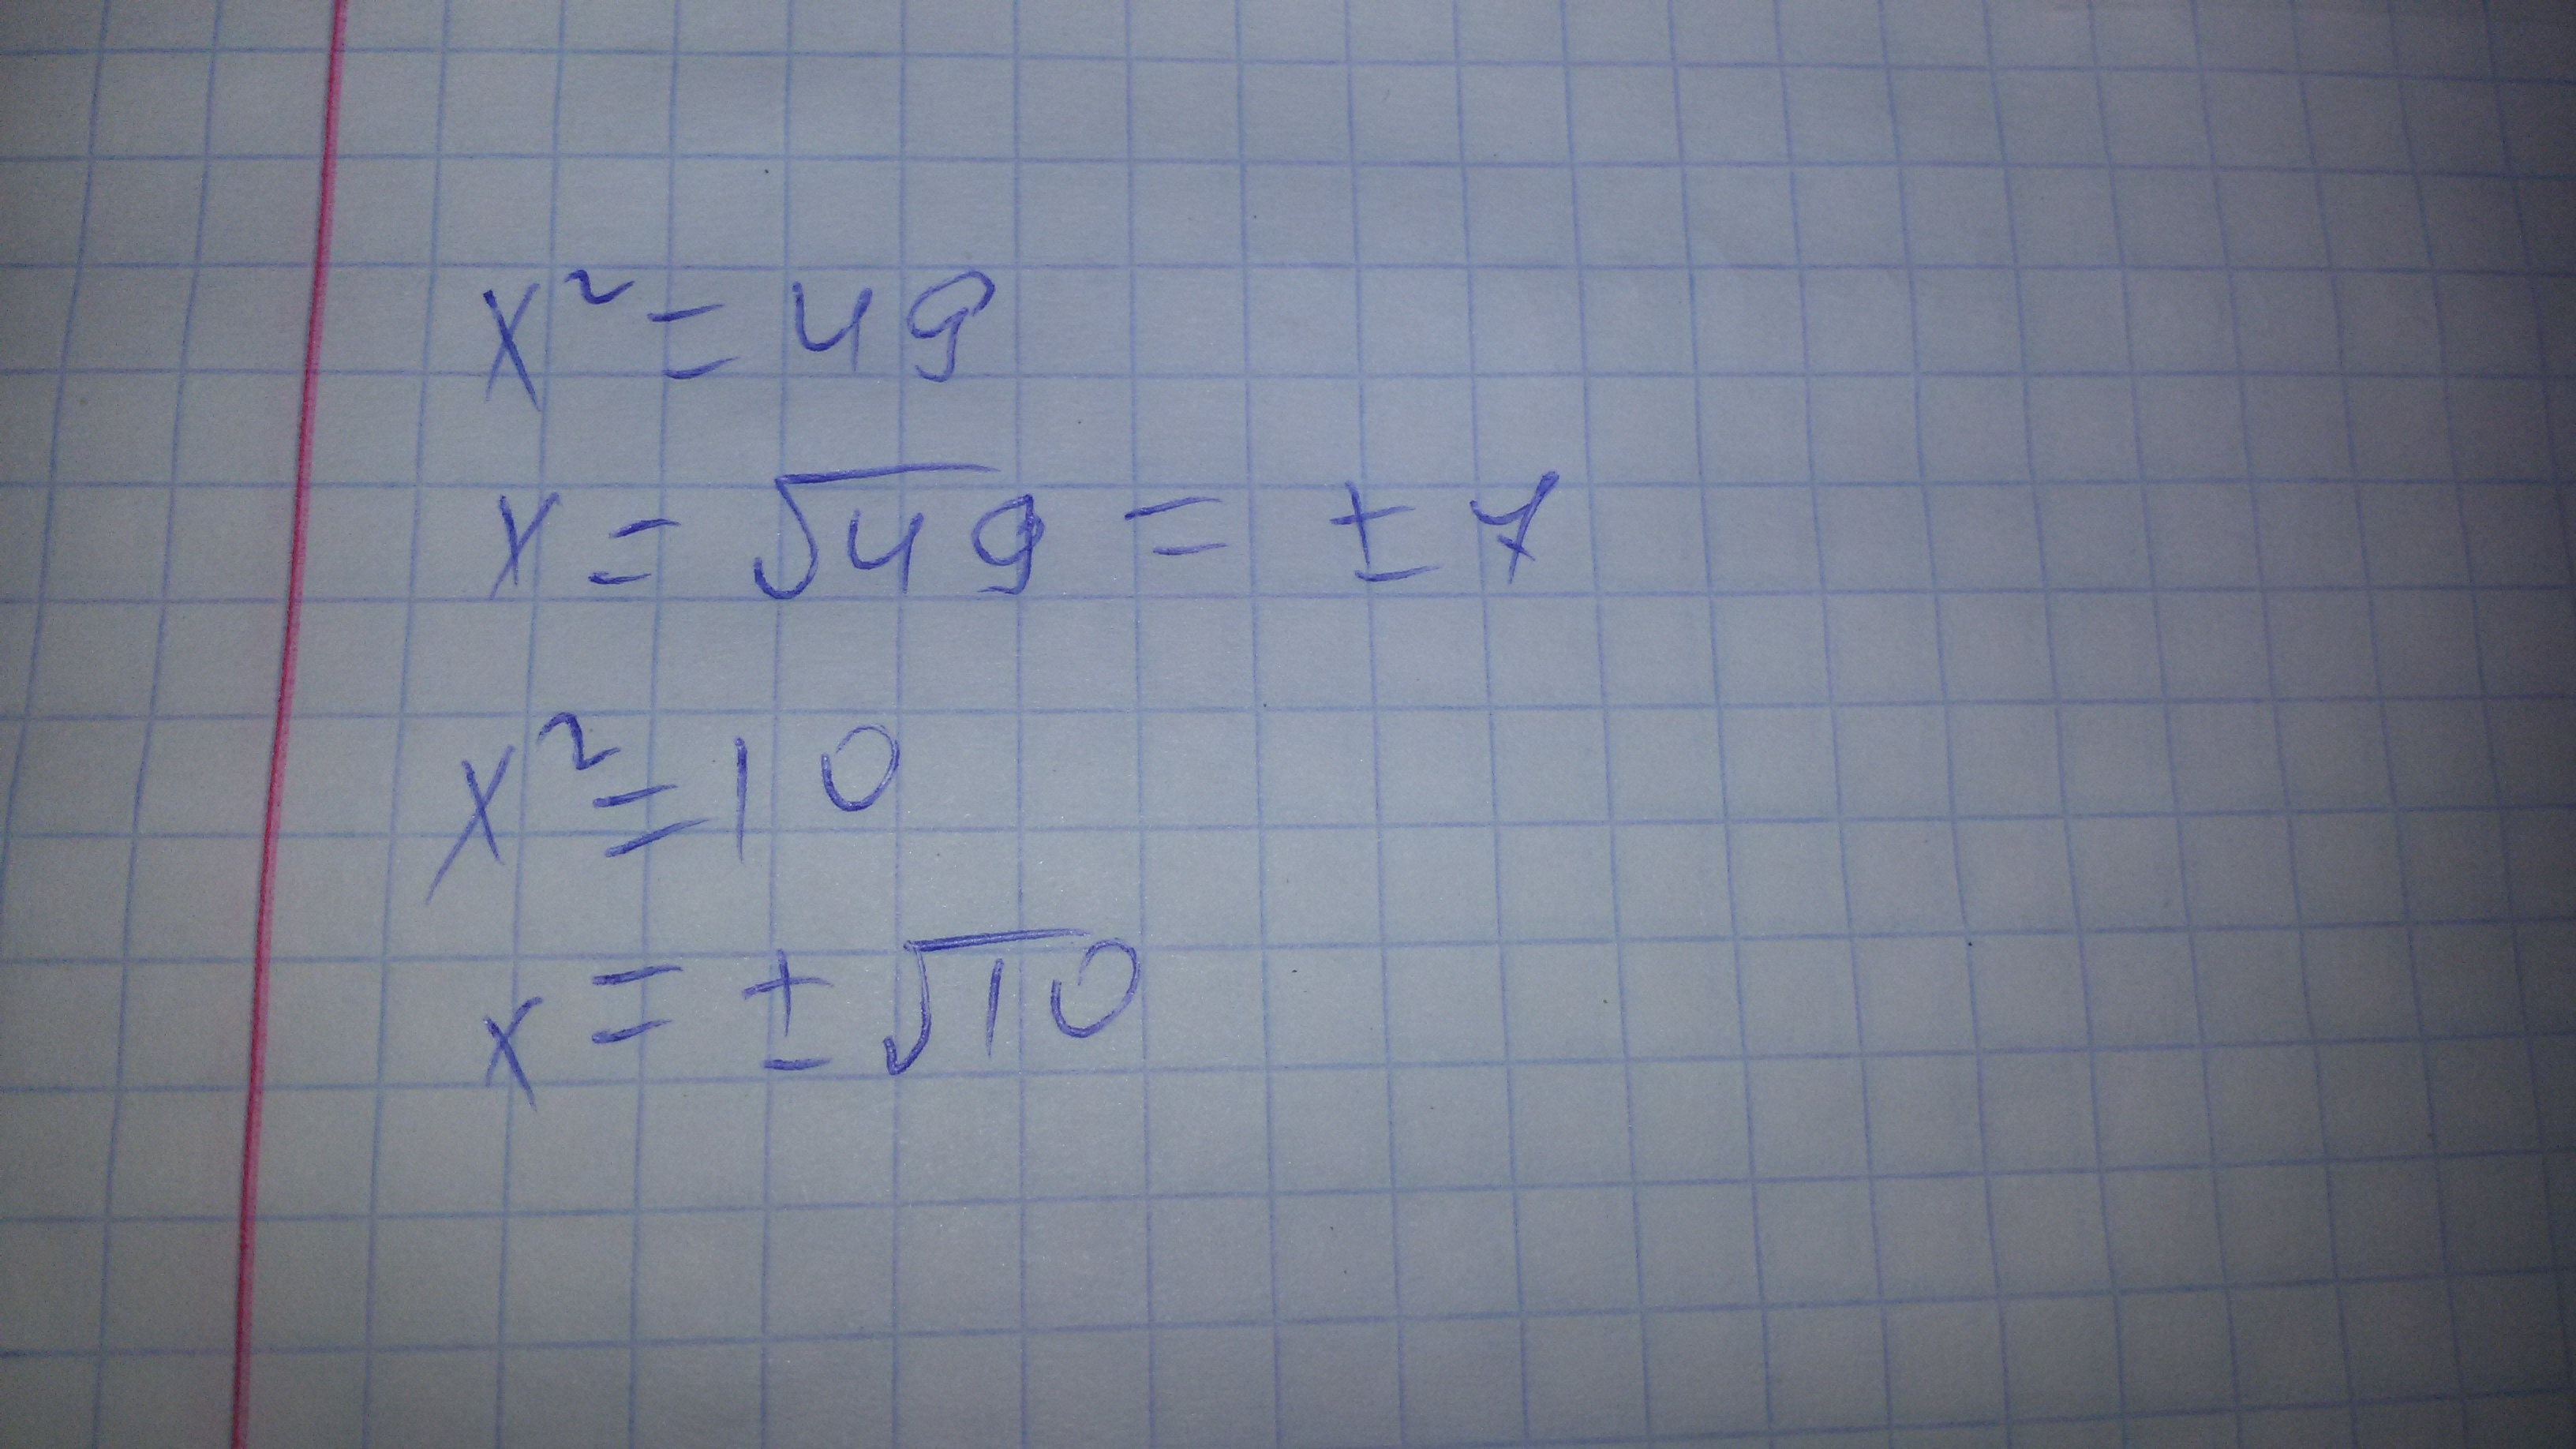 x² = 49
x = √49 = ± 7
x² = 10
x = ± √10